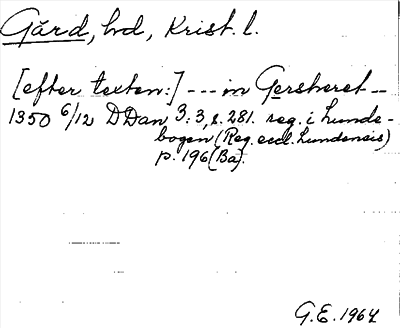 Gård, hd, Krist. l.
[efter texten:] --- in Gersheret --
1350 6/12 DDan 3:3, s. 281. reg. i Lunde-
bogen (Reg. eccl. Lundensis)
p. 196 (Ba).
G.E. 1964